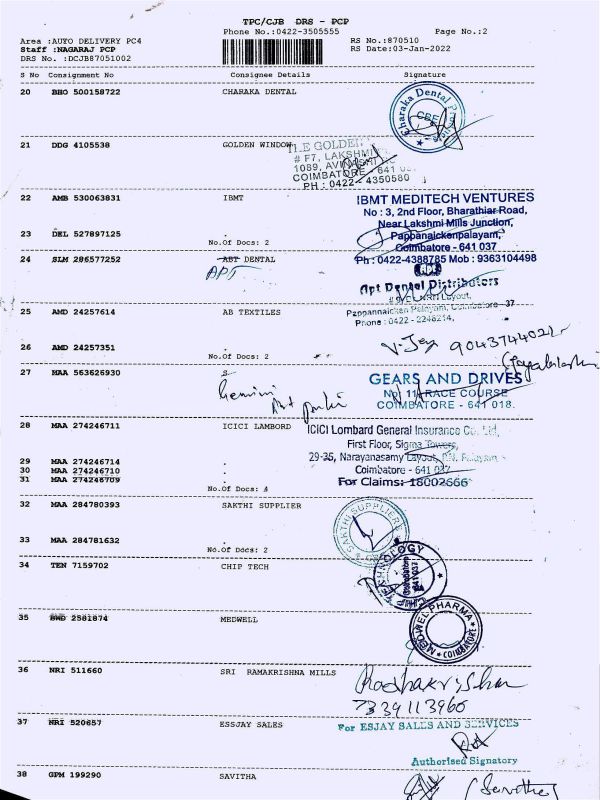 TPC/CJB DRS - PCP
Phone No.:0422-3505555 Page No.:2
Area :AUTO DELIVERY PC4 RS No.:870510
Staff :NAGARAJ PCP RS Date:03-Jan-2022
DRS No. :DCJB87051002
S No Consignment No Consignee Details Signature
20 BHO 500158722 CHARAKA DENTAL
Charaka Dental
CBE
21 DDG 4105538 GOLDEN WINDOW
THE GOLDEN
# F7, LAKSHMI
1089, AVINASHI
COIMBATORE - 641
PH : 0422- 4350580
22 AMB 530063831 IBMT
IBMT MEDITECH VENTURES
No : 3, 2nd Floor, Bharathiar Road,
Near Lakshmi Mills Junction,
23 DEL 527897125
Pappanaickenpalayam,
No.Of Docs: 2
Coimbatore - 641 037
24 SLM 286577252 ABT DENTAL
Ph : 0422-4388785 Mob : 9363104498
APT
APT
Apt Dental Distributors
Layout,
25 AMD 24257614 AB TEXTILES
Pappannaicken Palayam, Coimbatore - 37
Phone : 0422 - 2246214,
26 AMD 24257351
V. Jay 9043744022
No.Of Docs: 2
27 MAA 563626930
Gemini
GEARS AND DRIVES
No. 11A RACE COURSE
COIMBATORE - 641 018.
28 MAA 274246711 ICICI LAMBORD
ICICI Lombard General Insurance Co. Ltd,
First Floor, Sigma Towers,
29 MAA 274246714
29-35, Narayanasamy Layout, P.N. Palayam
30 MAA 274246710
Coimbatore - 641 037
31 MAA 274246709
No.Of Docs: 4
For Claims: 18002666
32 MAA 284780393 SAKTHI SUPPLIER
SAKTHI SUPPLIERS
33 MAA 284781632
No.Of Docs: 2
34 TEN 7159702 CHIP TECH
Coimbatore
641 037
35 BWD 2581874 MEDWELL
MEDWEL PHARMA
COIMBATORE
36 NRI 511660 SRI RAMAKRISHNA MILLS
Radhakrishnan
7339113960
37 NRI 520657 ESSJAY SALES
For ESJAY SALES AND SERVICES
Authorised Signatory
38 GPM 199290 SAVITHA
(Savitha)